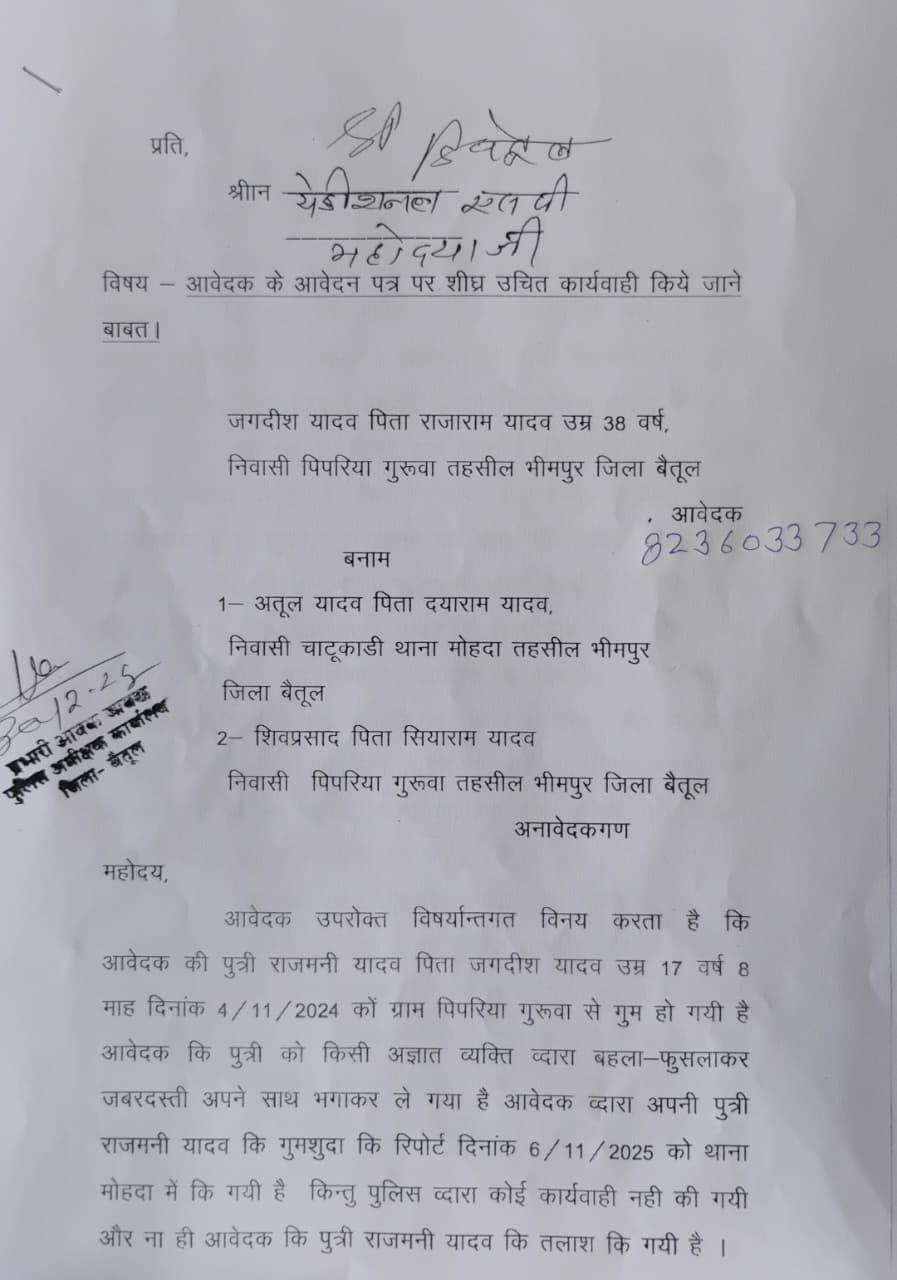 प्रति,
श्री
श्रीान येडीशनल एस पी
महोदया जी
विषय – आवेदक के आवेदन पत्र पर शीघ्र उचित कार्यवाही किये जाने
बाबत।
जगदीश यादव पिता राजाराम यादव उम्र 38 वर्ष,
निवासी पिपरिया गुरूवा तहसील भीमपुर जिला बैतूल
. आवेदक
8236033733
बनाम
1– अतूल यादव पिता दयाराम यादव,
निवासी चाटूकाडी थाना मोहदा तहसील भीमपुर
जिला बैतूल
2– शिवप्रसाद पिता सियाराम यादव
निवासी पिपरिया गुरूवा तहसील भीमपुर जिला बैतूल
अनावेदकगण
प्रभारी आवक जावक
पुलिस अधीक्षक कार्यालय
जिला- बैतूल
महोदय,
आवेदक उपरोक्त विषर्यान्तगत विनय करता है कि
आवेदक की पुत्री राजमनी यादव पिता जगदीश यादव उम्र 17 वर्ष 8
माह दिनांक 4/11/2024 कों ग्राम पिपरिया गुरूवा से गुम हो गयी है
आवेदक कि पुत्री को किसी अज्ञात व्यक्ति व्दारा बहला–फुसलाकर
जबरदस्ती अपने साथ भगाकर ले गया है आवेदक व्दारा अपनी पुत्री
राजमनी यादव कि गुमशुदा कि रिपोर्ट दिनांक 6/11/2025 को थाना
मोहदा में कि गयी है किन्तु पुलिस व्दारा कोई कार्यवाही नही की गयी
और ना ही आवेदक कि पुत्री राजमनी यादव कि तलाश कि गयी है ।